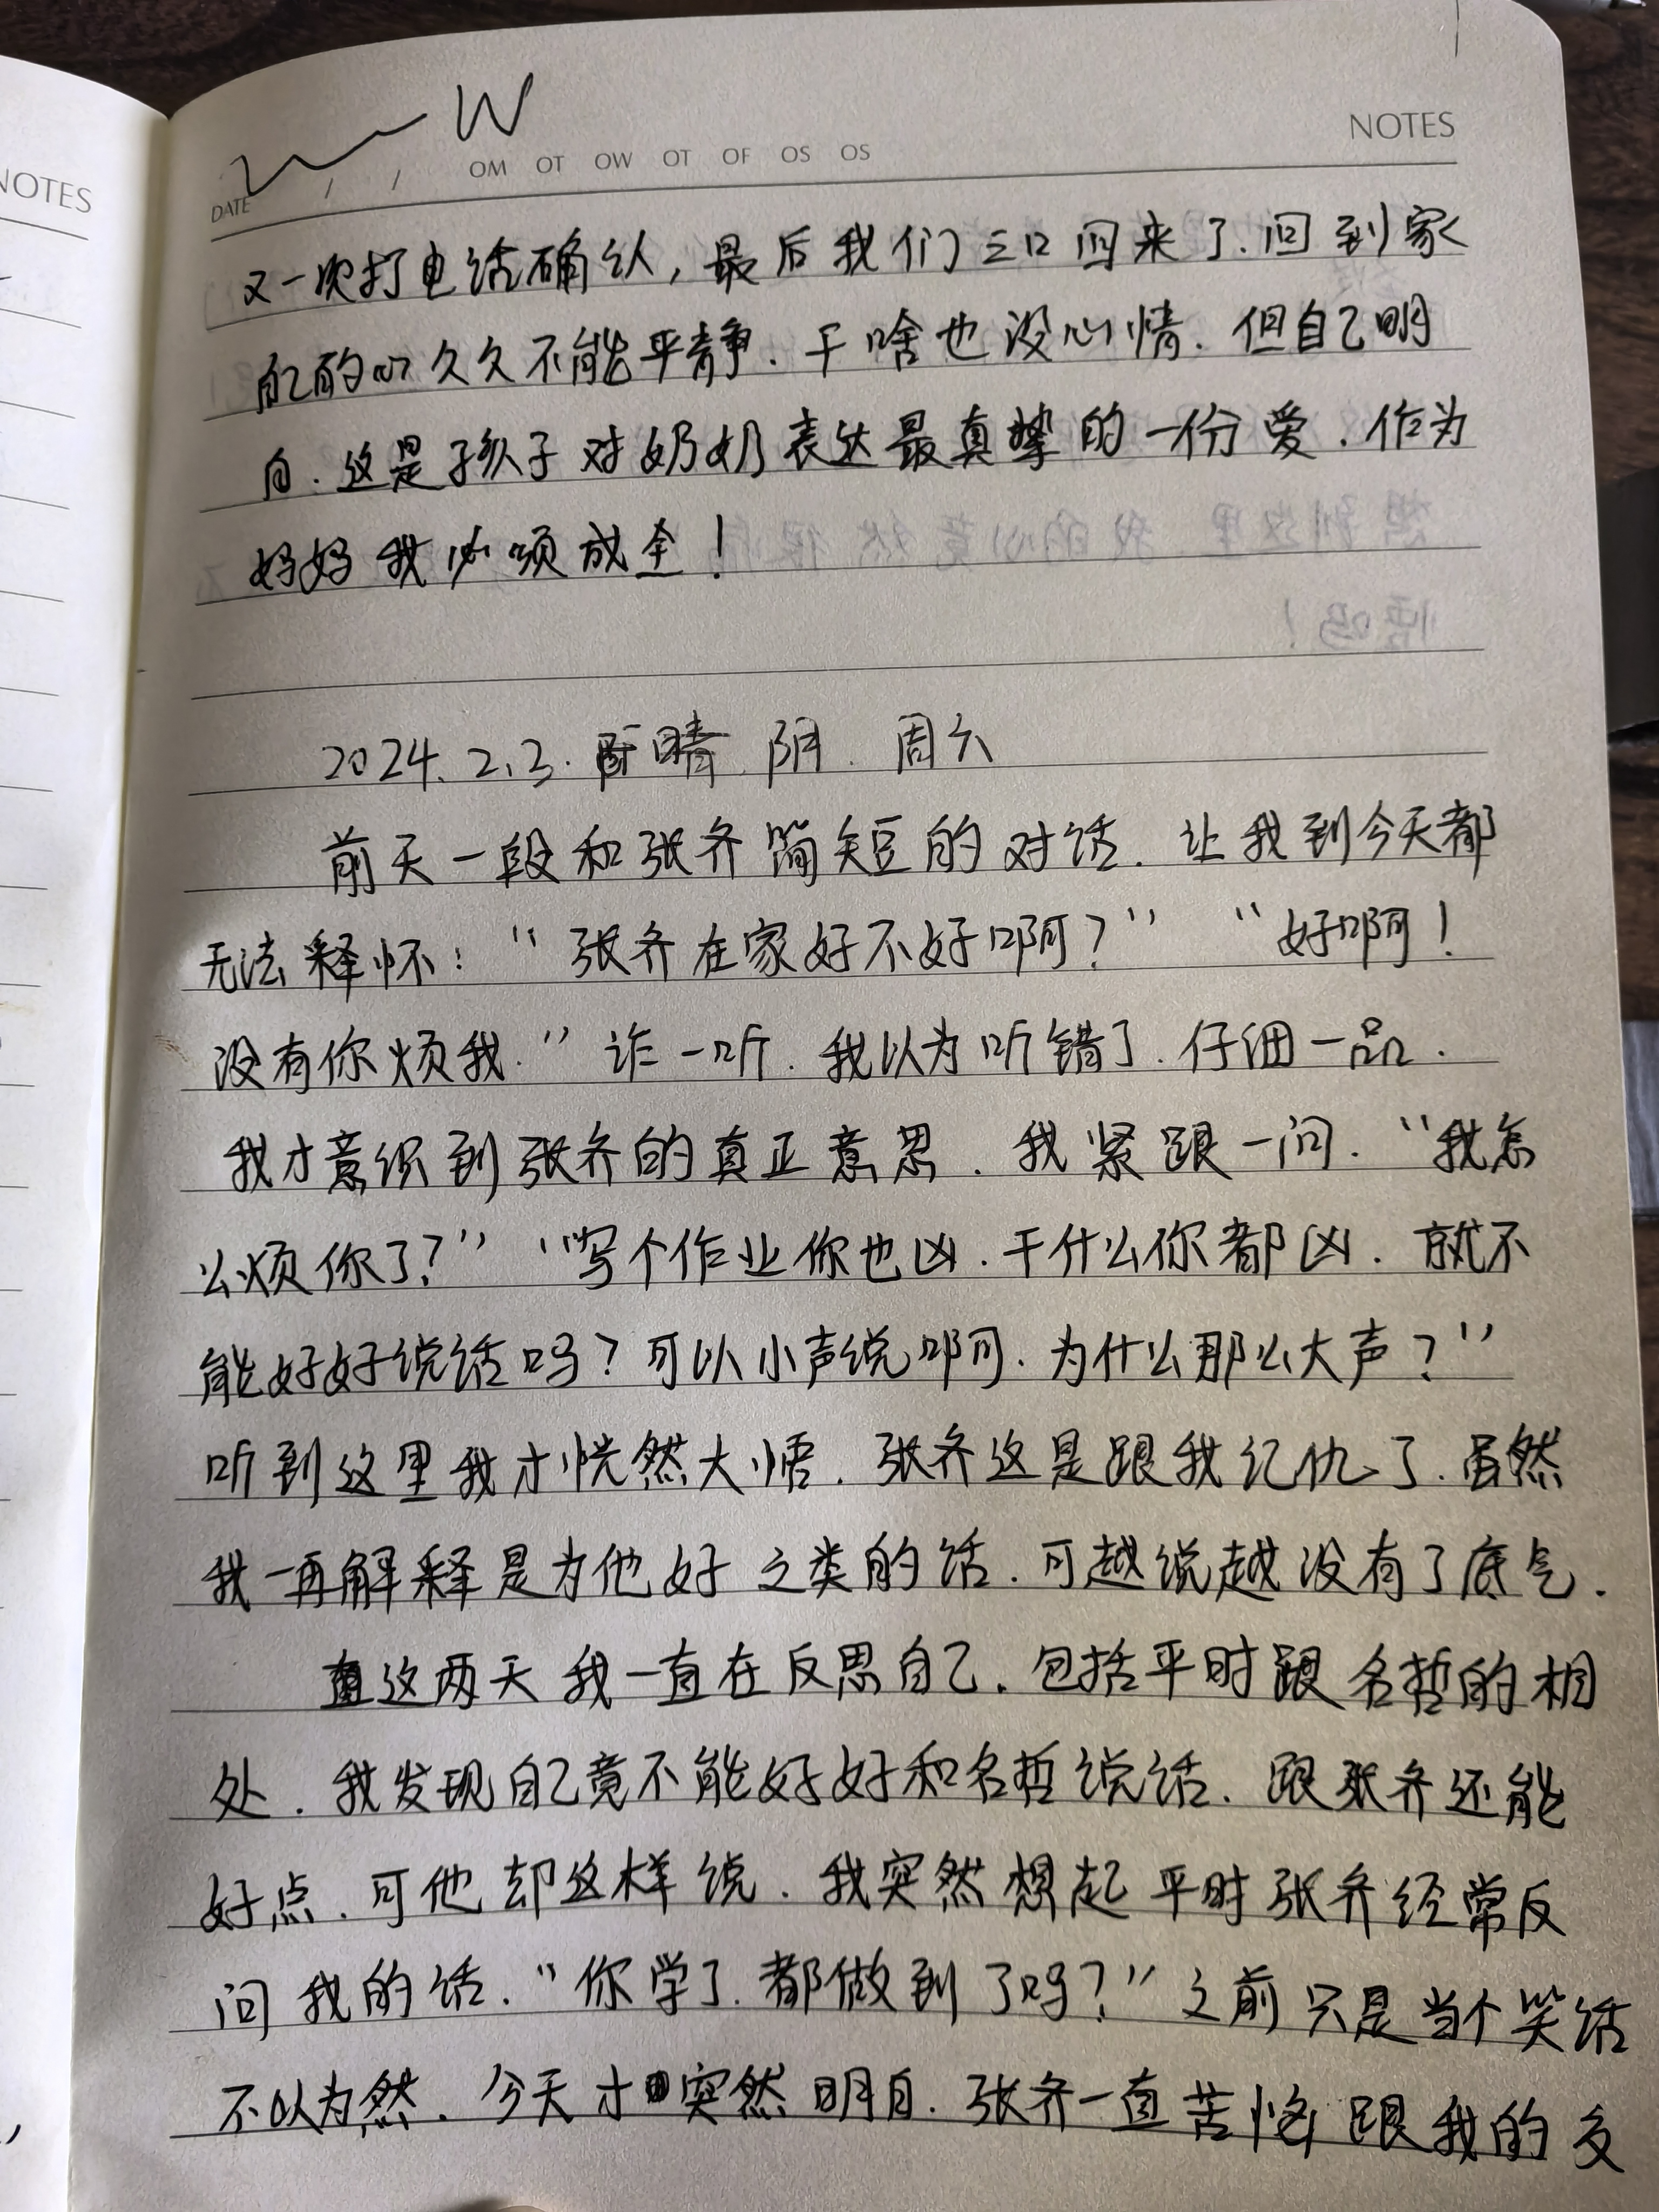 NOTES
W
NOTES
DATE / / OM OT OW OT OF OS OS
又一次打电话确认，最后我们三口回来了.回到家
自己的心久久不能平静.干啥也没心情.但自己明
白.这是孩子对奶奶表达最真挚的一份爱.作为
妈妈我必须成全！
2024.2.3. 晴 阴. 周六
前天一段和张齐简短的对话.让我到今天都
无法释怀："张齐在家好不好啊？" "好啊！
没有你烦我."诈一听.我以为听错了.仔细一品.
我才意识到张齐的真正意思.我紧跟一问."我怎
么烦你了？" "写个作业你也凶.干什么你都凶.就不
能好好说话吗？可以小声说啊.为什么那么大声？"
听到这里我才恍然大悟.张齐这是跟我记仇了.虽然
我一再解释是为他好之类的话.可越说越没有了底气.
这两天我一直在反思自己.包括平时跟名哲的相
处.我发现自己竟不能好好和名哲说话.跟张齐还能
好点.可他却这样说.我突然想起平时张齐经常反
问我的话."你学了.都做到了吗？"之前只是当个笑话
不以为然.今天才突然明白.张齐一直苦恼跟我的交